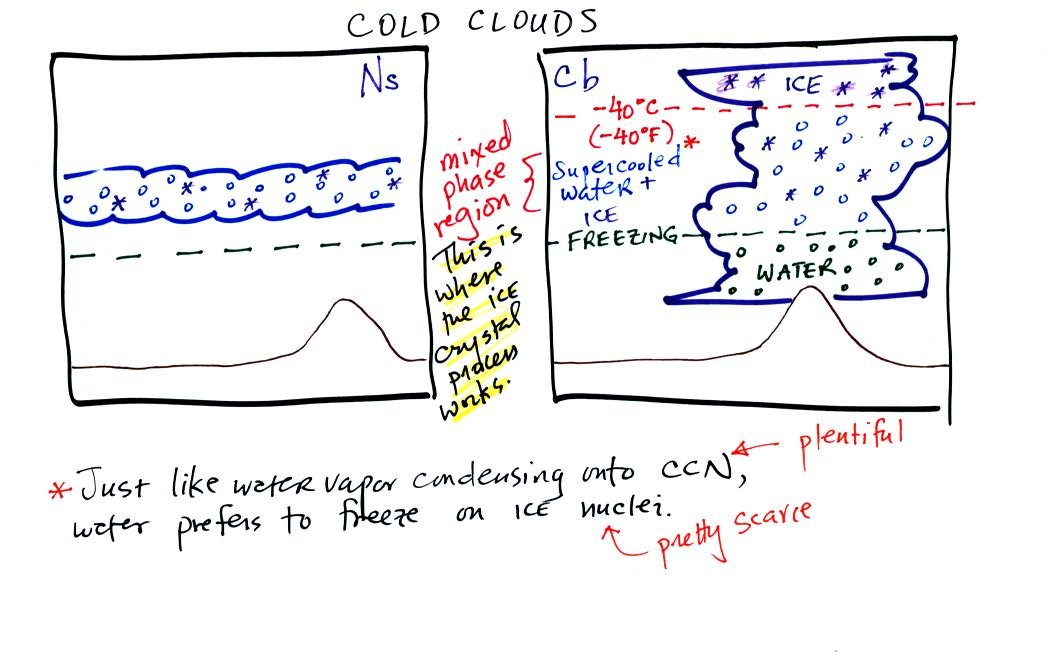 COLD CLOUDS
Ns
mixed
phase
region
This is
where
the ICE
crystal
process
works.
Cb
ICE
-40°C
(-40°F) *
Supercooled
water +
ICE
FREEZING
WATER
* Just like water vapor condensing onto CCN,
plentiful
water prefers to freeze on ICE nuclei.
pretty scarce